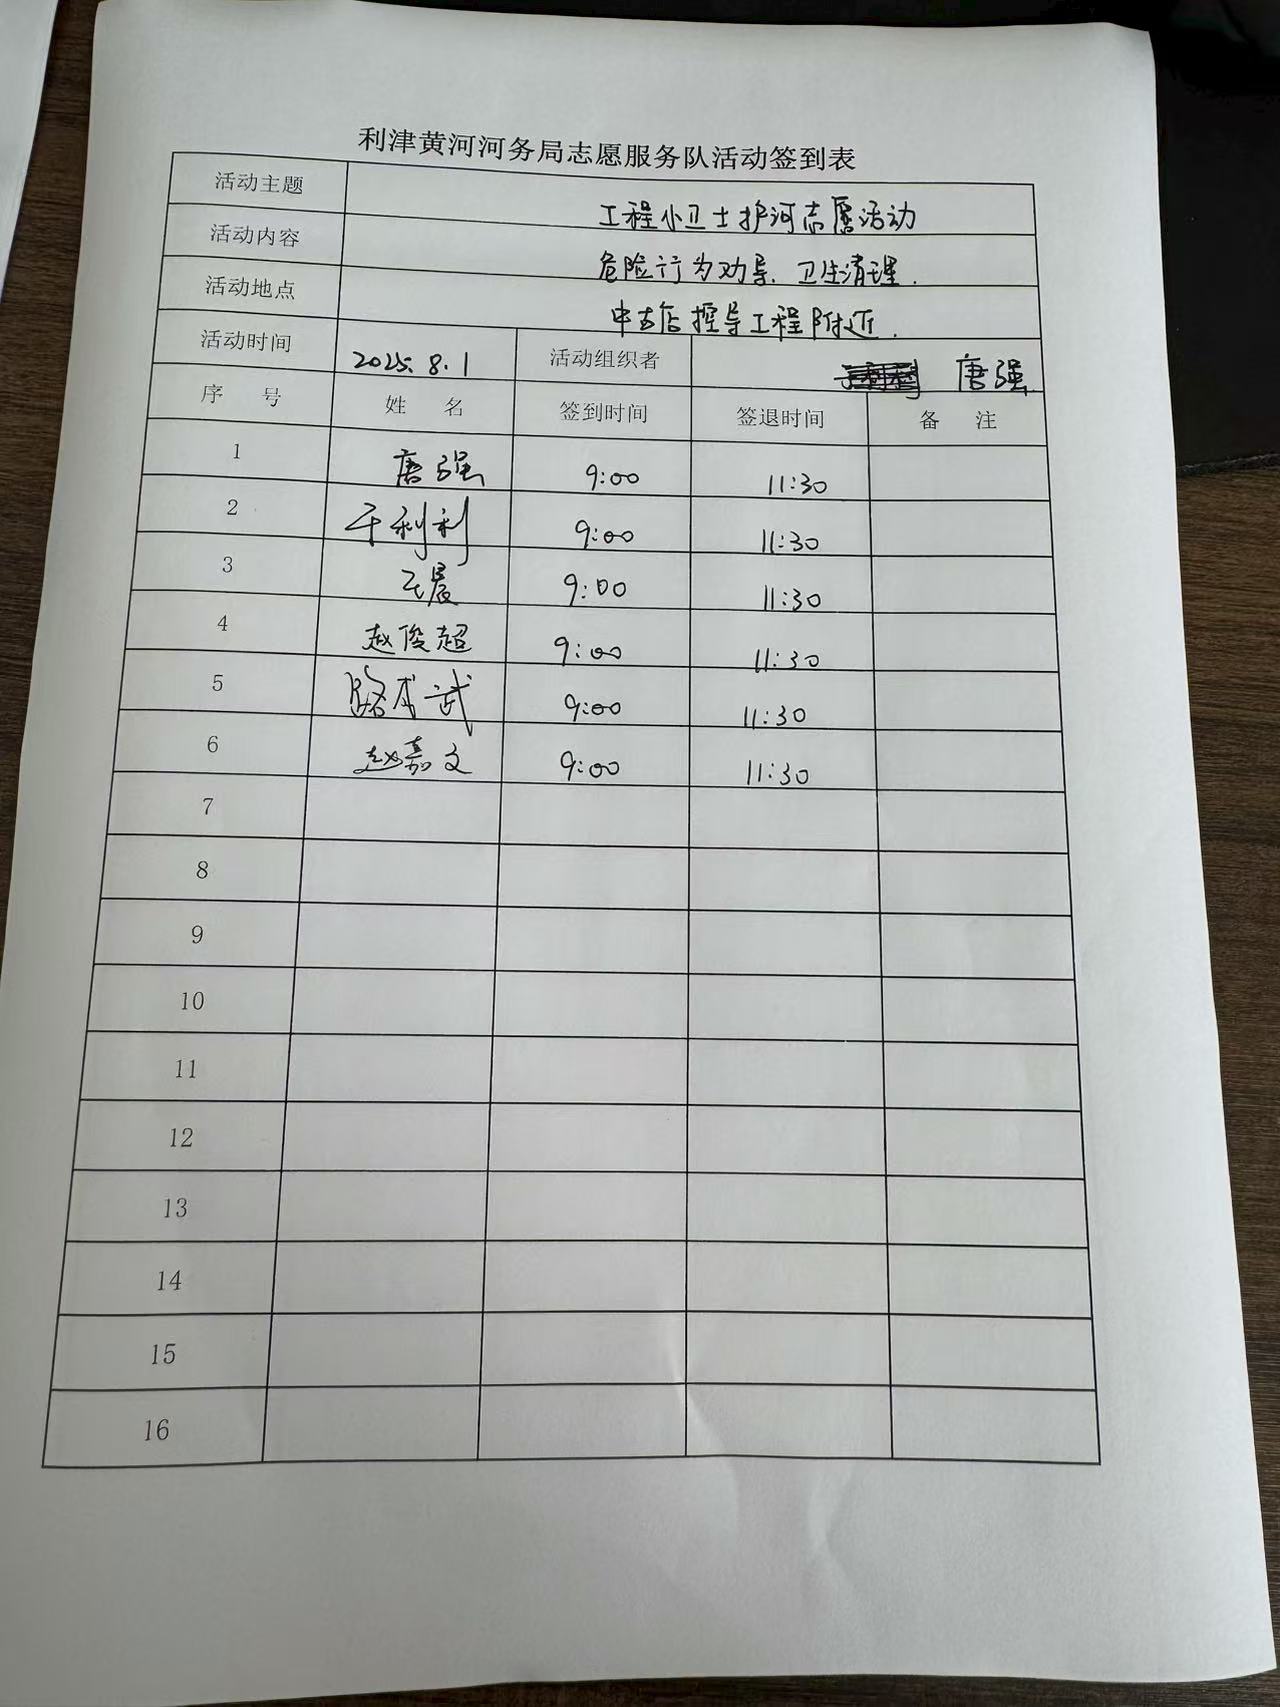 利津黄河河务局志愿服务队活动签到表
活动主题 工程小卫士护河志愿活动
活动内容 危险行为劝导、卫生清理.
活动地点 中古店控导工程附近.
活动时间 2025.8.1 活动组织者 唐强
序 号 姓 名 签到时间 签退时间 备 注
1 唐强 9:00 11:30
2 于利利 9:00 11:30
3 9:00 11:30
4 赵俊超 9:00 11:30
5 9:00 11:30
6 赵嘉文 9:00 11:30
7
8
9
10
11
12
13
14
15
16